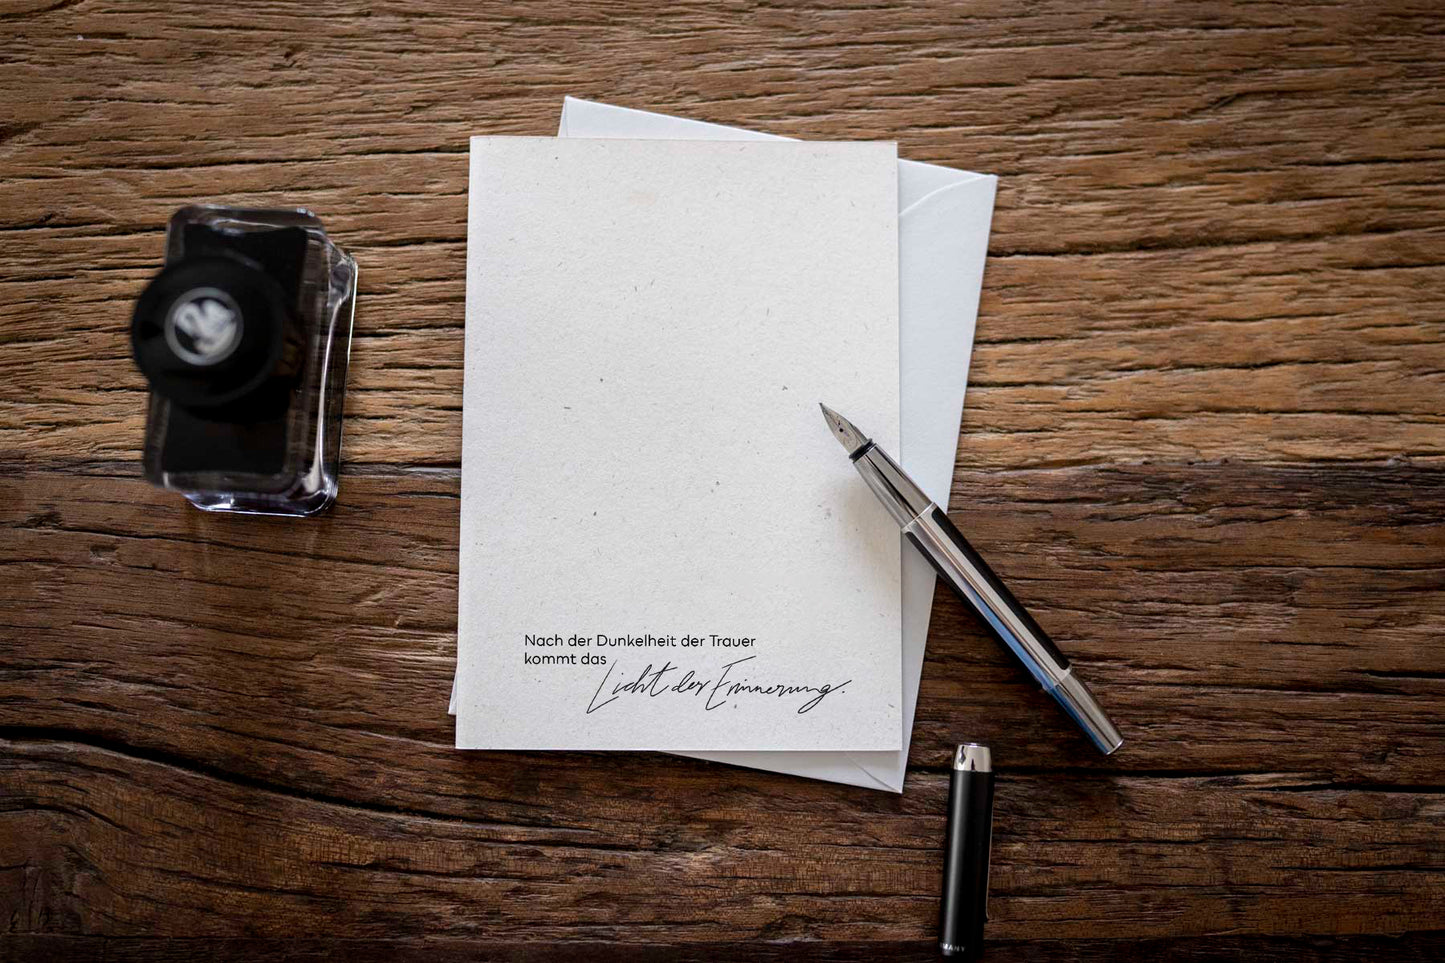 Nach der Dunkelheit der Trauer
kommt das Licht der Erinnerung.
MANY